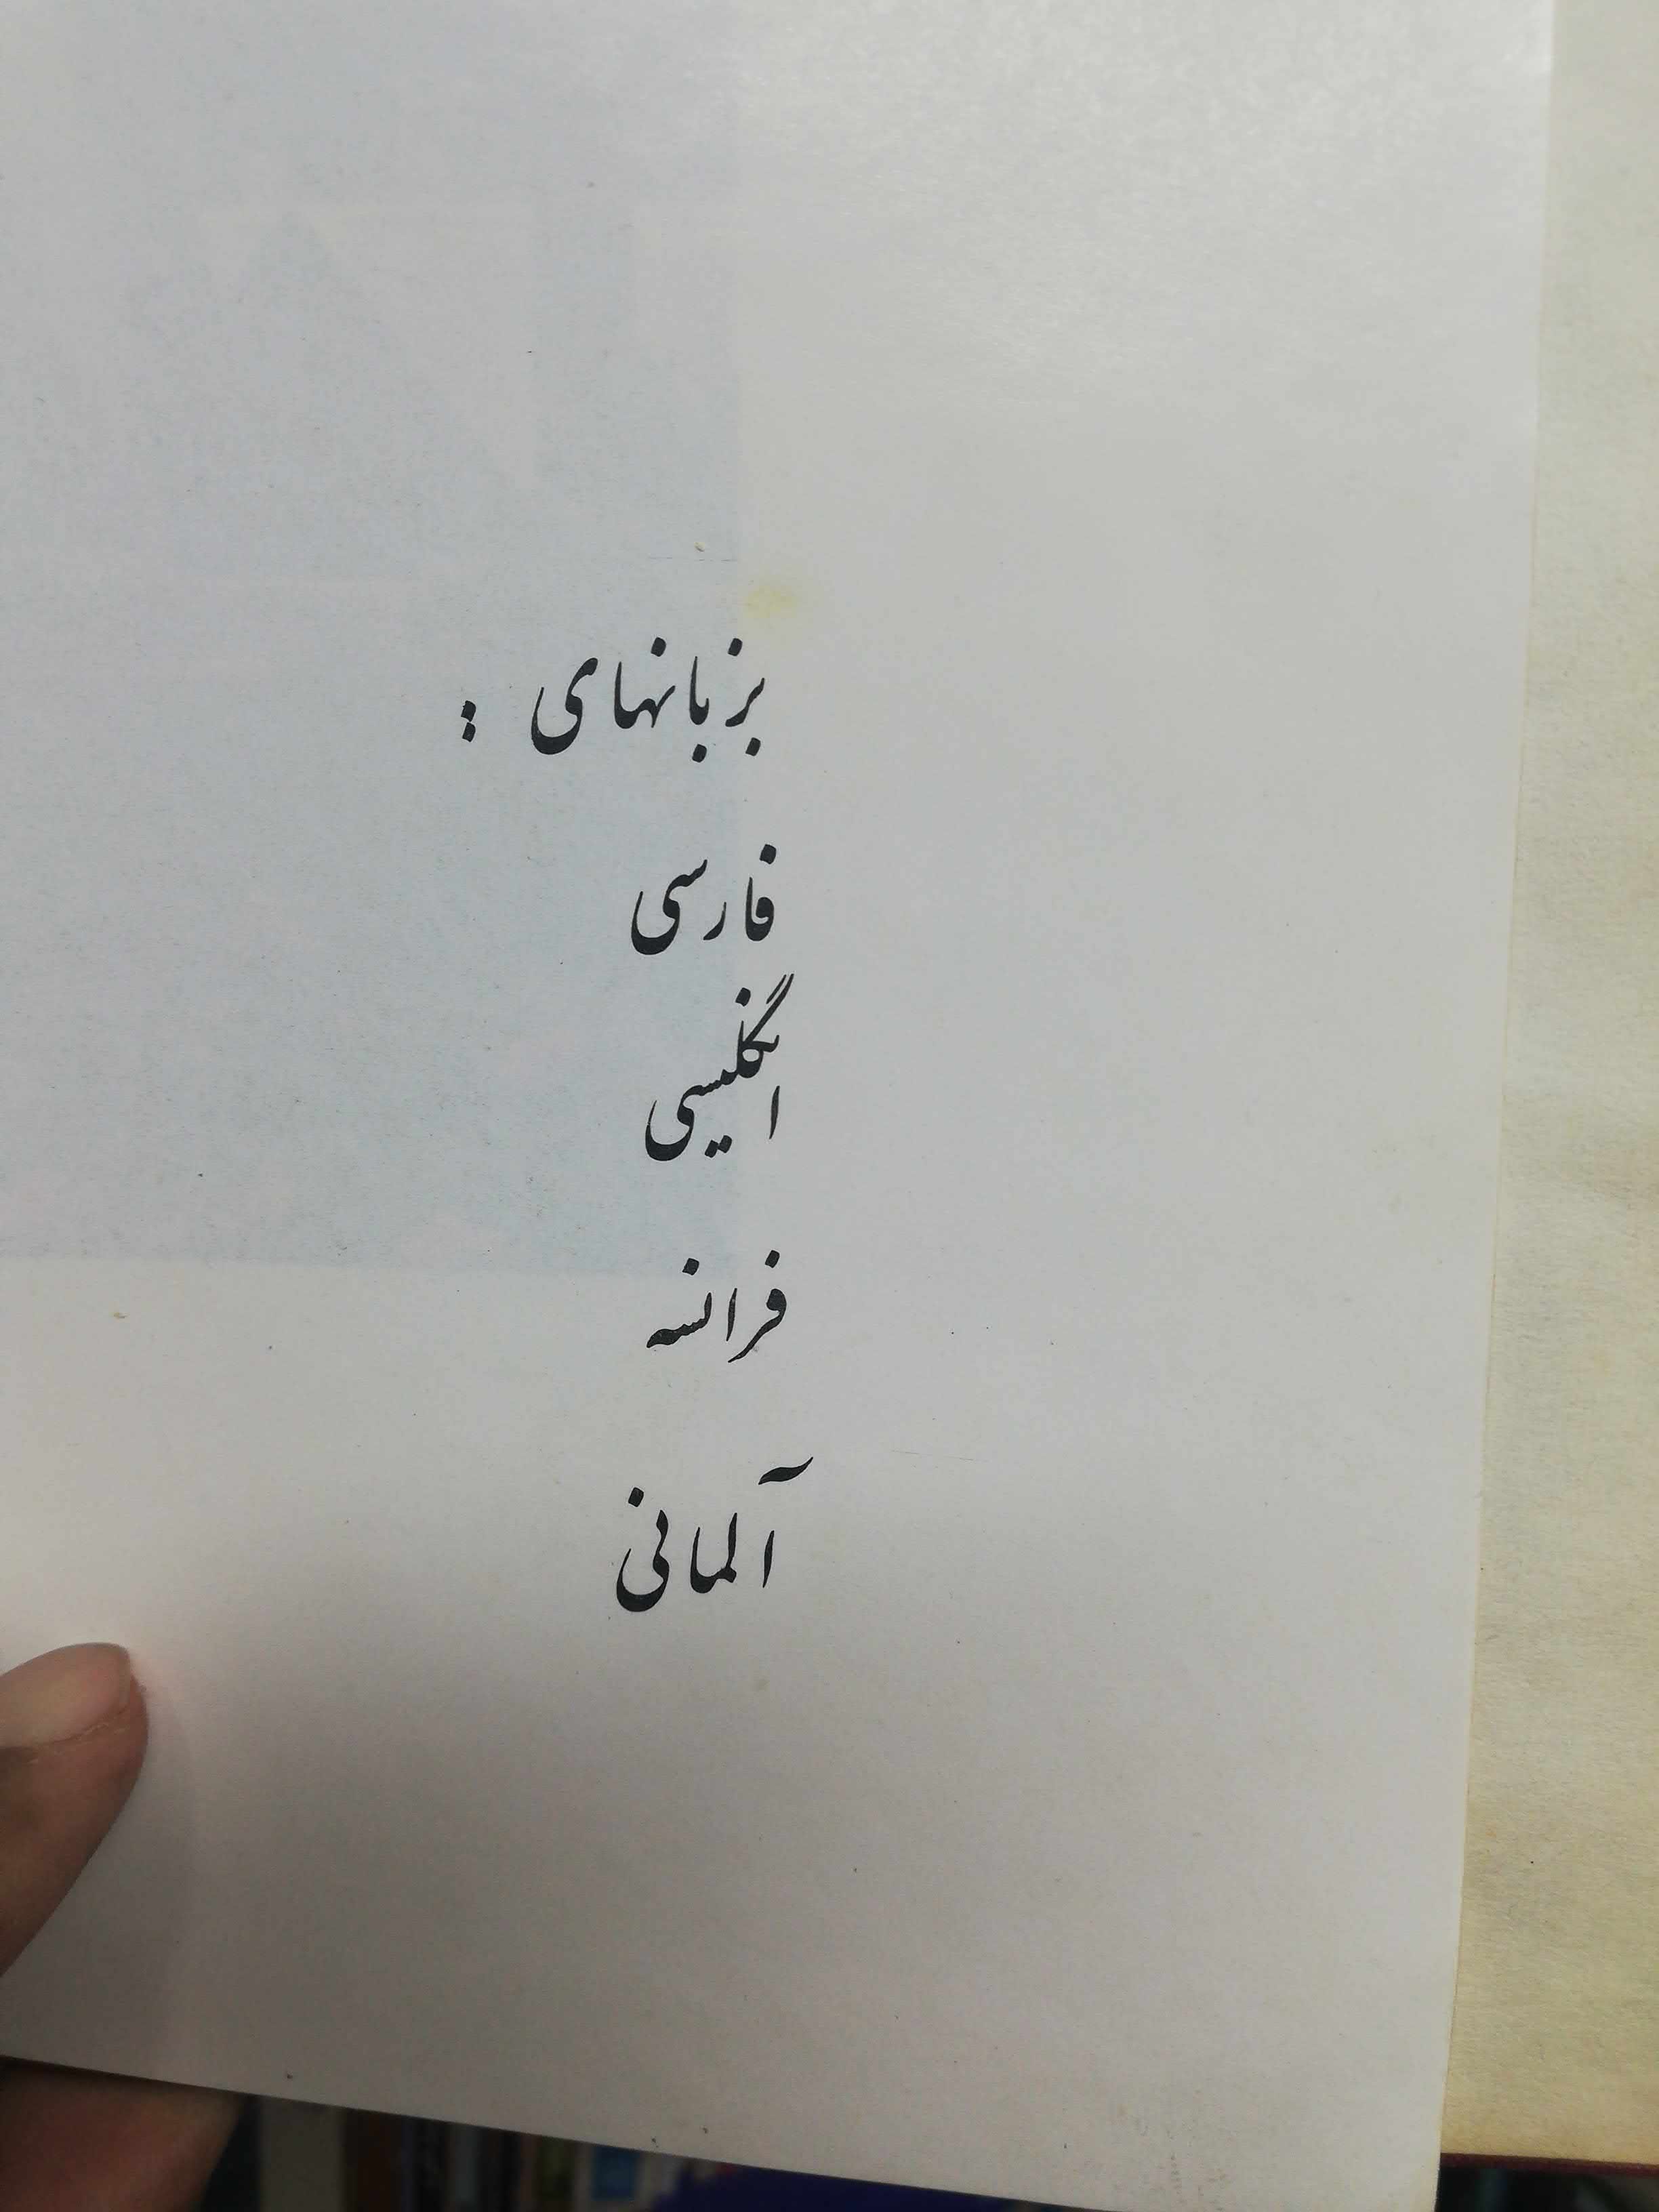 بزبانهای :
فارسی
انگلیسی
فرانسه
آلمانی